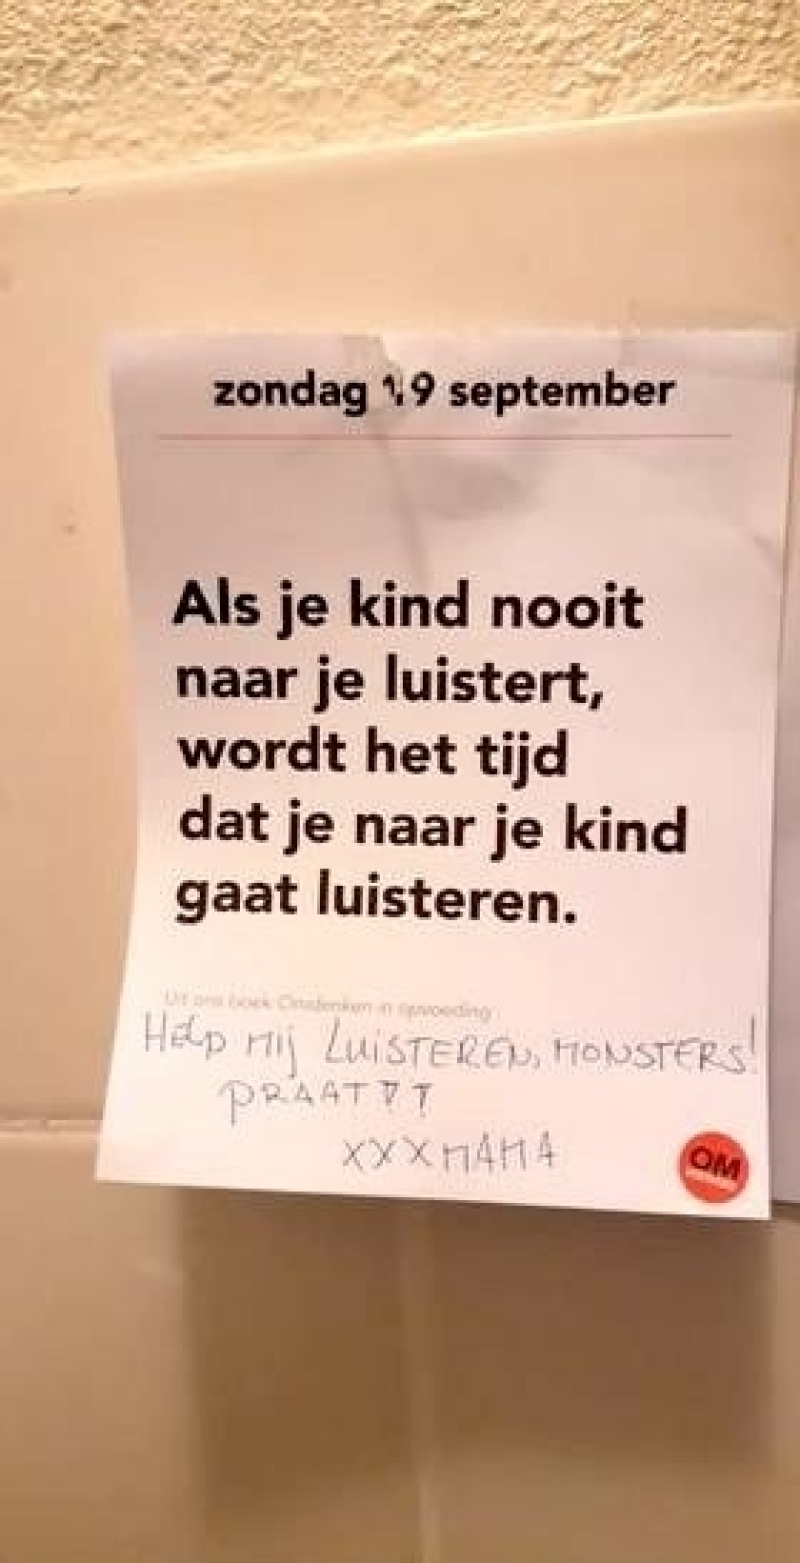 zondag 19 september
Als je kind nooit
naar je luistert,
wordt het tijd
dat je naar je kind
gaat luisteren.
Uit ons boek Omdenken in opvoeding
HELP MIJ LUISTEREN, MONSTERS!
PRAAT!!
XXX MAMA
OM